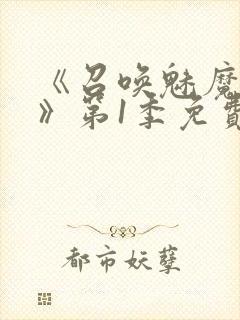 《召唤魅魔
》第1季免費
都市妖孽